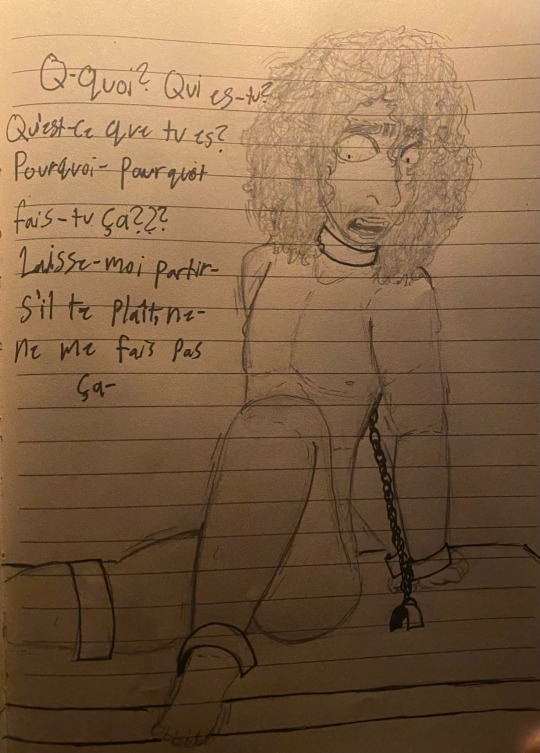 Q-quoi? Qui es-tu?
Qu'est-ce que tu es?
Pourquoi- pourquoi
fais-tu ça???
Laisse-moi partir-
s'il te plaît, ne-
ne me fais pas
ça-